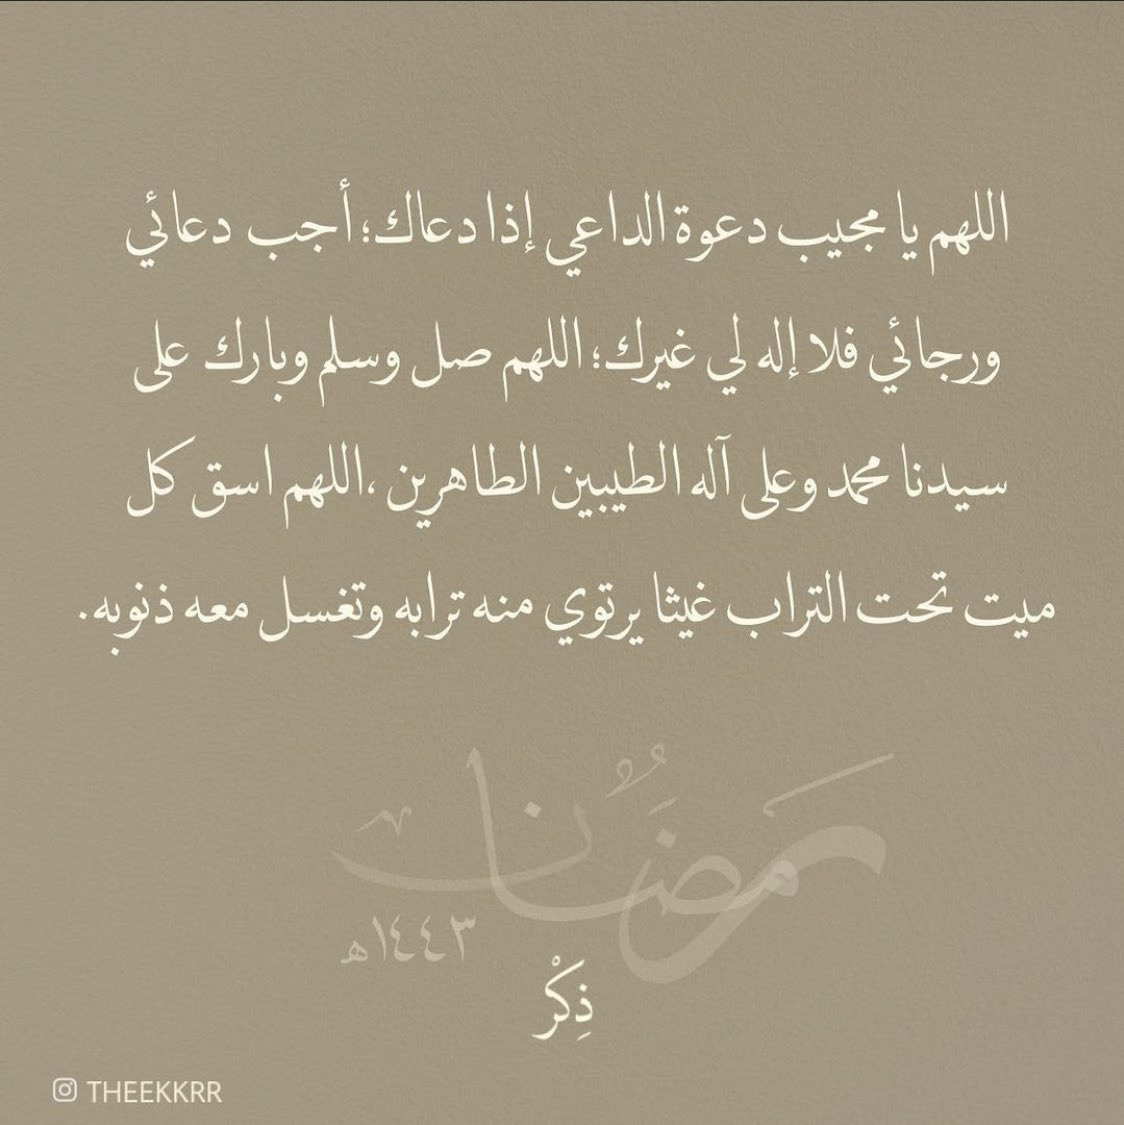 اللهم يا مجيب دعوة الداعي إذا دعاك؛ أجب دعائي
ورجائي فلا إله لي غيرك؛ اللهم صل وسلم وبارك على
سيدنا محمد وعلى آله الطيبين الطاهرين ،اللهم اسق كل
ميت تحت التراب غيثا يرتوي منه ترابه وتغسل معه ذنوبه.
رَمَضَانُ
١٤٤٣هـ
ذِكْر
THEEKKRR